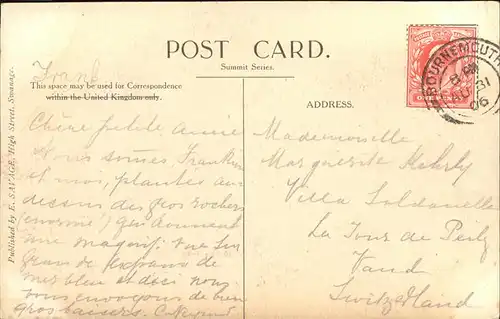 POST CARD.
Summit Series.
This space may be used for Correspondence
within the United Kingdom only.
ADDRESS.
Published by E. SAVAGE, High Street, Swanage.
BOURNEMOUTH
AU 31
06
Chère petite amie
Nous
et moi, plantés au
dessus des gros rochers
(énorme) qui donnent
une magnif. vue sur
de
mer bleu et d'ici nous
vous envoyons de bien
gros baisers.
Mademoiselle
Marguerite
Villa Soldanelle
La Tour de Peilz
Vaud
Switzerland